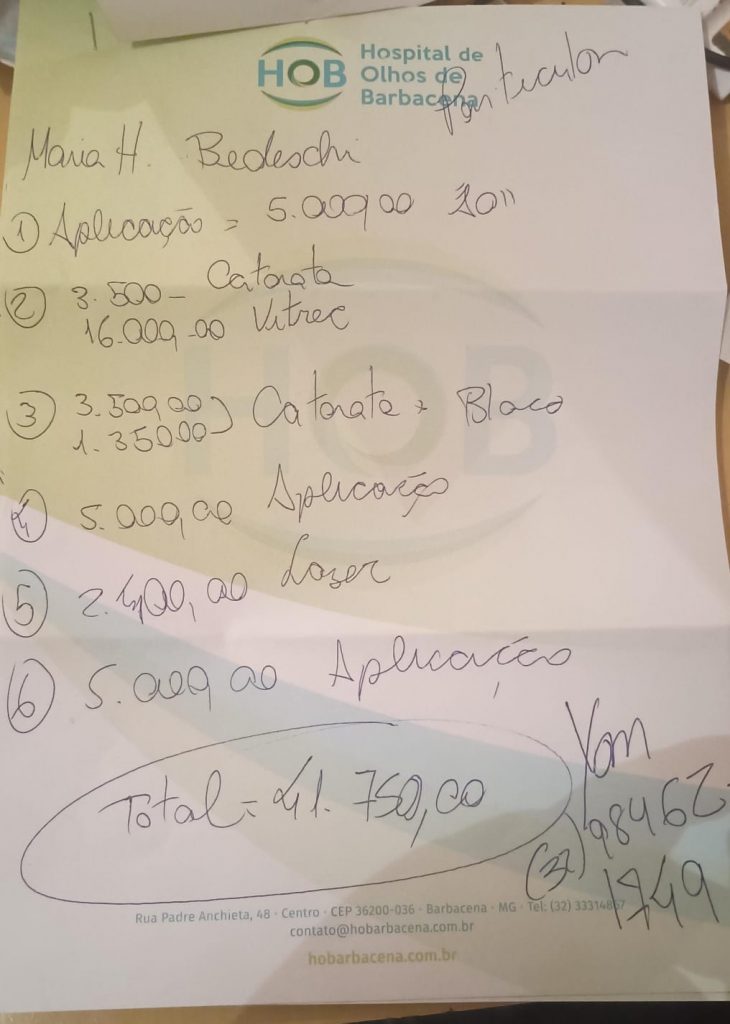 HOB Hospital de
Olhos de
Barbacena
Particular
Maria H. Bedeschi
① Aplicação = 5.000,00
② 3.500 - Catarata
16.000,00 Vitrec
③ 3.500,00) Catarata + Bloco
1.350,00
④ 5.000,00 Aplicação
⑤ 2.400,00 Laser
⑥ 5.000,00 Aplicação
Total = 41.750,00
(32) 98462
1749
HOB
Rua Padre Anchieta, 48 · Centro · CEP 36200-036 · Barbacena · MG · Tel: (32) 33314867
contato@hobarbacena.com.br
hobarbacena.com.br